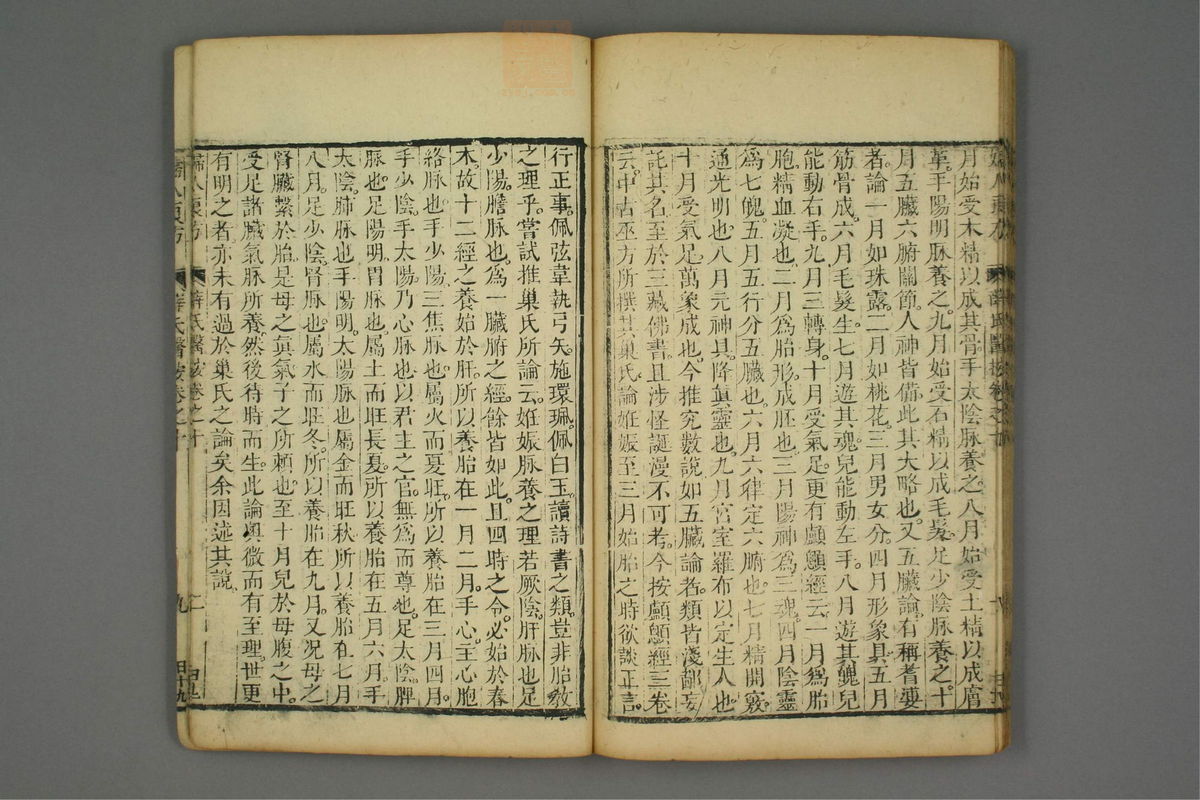 月始受木精以成其骨手太陰脉養之八月始受土精以成膚
革手陽明脉養之九月始受石精以成毛髮足少陰脉養之十
月五臟六腑關節人神皆備此其大略也又五臟論有稱耆婆
者論一月如珠露二月如桃花三月男女分四月形象具五月
筋骨成六月毛髮生七月遊其魂兒能動左手八月遊其魄兒
能動右手九月三轉身十月受氣足更有顱顖經云一月爲胎
胞精血凝也二月爲胎形成胚也三月陽神爲三魂四月陰靈
爲七魄五月五行分五臟也六月六律定六腑也七月精開竅
通光明也八月元神具降眞靈也九月宮室羅布以定生人也
十月受氣足萬象成也今推究數說如五臟論者類皆淺鄙妄
託其名至於三藏佛書且涉怪誕漫不可考今按顱顖經三卷
云中古巫方所撰其巢氏論姙娠至三月始胎之時欲談正言
行正事佩弦韋執弓矢施環珮佩白玉讀詩書之類豈非胎教
之理乎嘗試推巢氏所論云姙娠脉養之理若厥陰肝脉也足
少陽膽脉也爲一臟腑之經餘皆如此且四時之令必始於春
木故十二經之養始於肝所以養胎在一月二月手心主心胞
絡脉也手少陽三焦脉也屬火而夏旺所以養胎在三月四月
手少陰手太陽乃心脉也以君主之官無爲而尊也足太陰脾
脉也足陽明胃脉也屬土而旺長夏所以養胎在五月六月手
太陰肺脉也手陽明太陽脉也屬金而旺秋所以養胎在七月
八月足少陰腎脉也屬水而旺冬所以養胎在九月又况母之
腎臟繫於胎是母之眞氣子之所賴也至十月兒於母腹之中
受足諸臟氣脉所養然後待時而生此論奧微而有至理世更
有明之者亦未有過於巢氏之論矣余因述其說
婦人良方 薛氏醫按卷之十 九